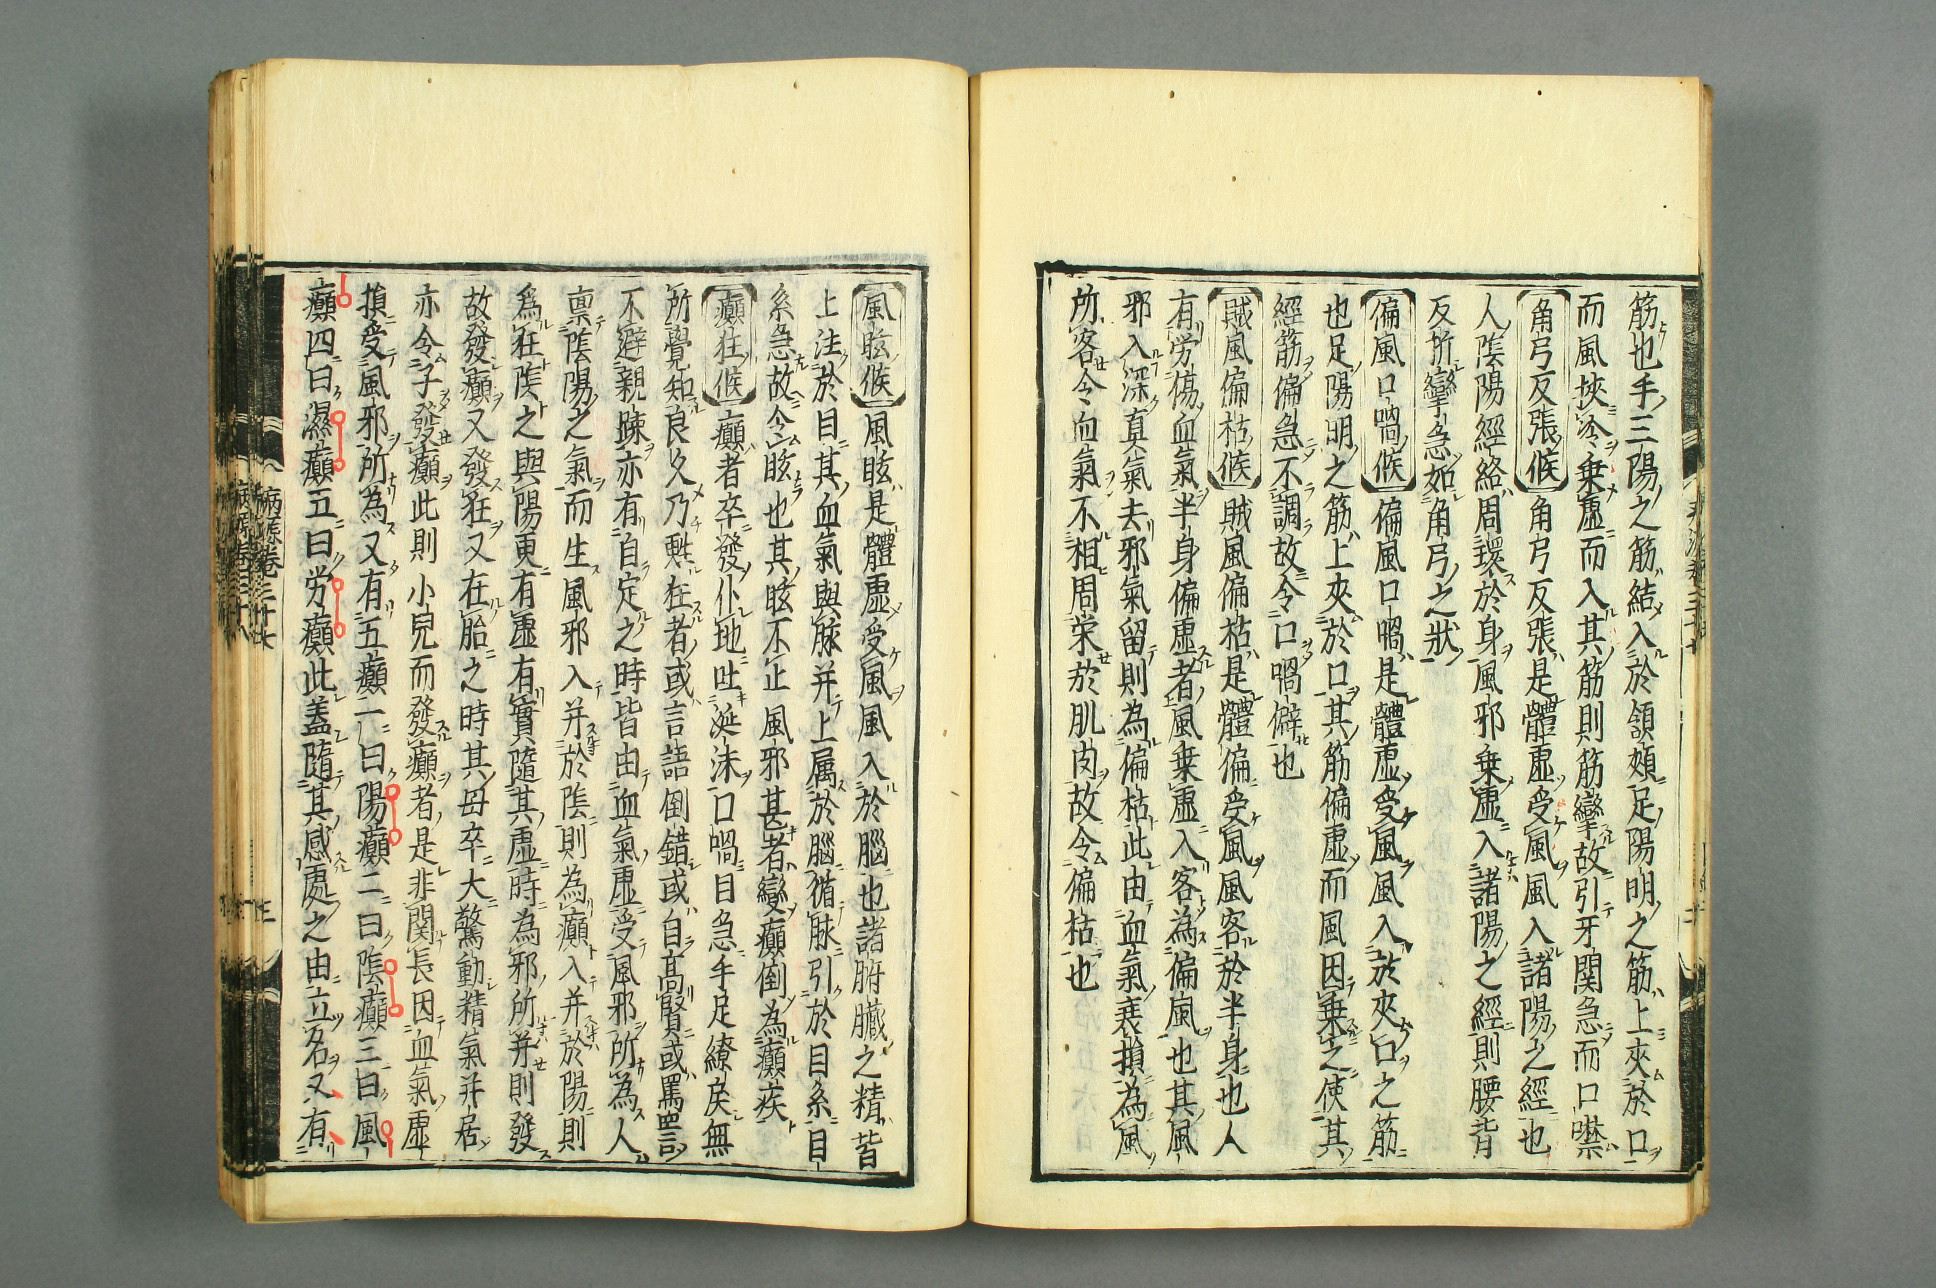 筋也手三陽之筋結入於頷頰足陽明之筋上夾於口
而風挾冷乗虛而入其筋則筋攣故引牙関急而口噤
角弓反張候 角弓反張是體虛受風風入諸陽之經也
人陰陽經絡周環於身風邪乗虛入諸陽之經則腰背
反折攣急如角弓之狀
偏風口喎候 偏風口喎是體虛受風風入於夾口之筋
也足陽明之筋上夾於口其筋偏虛而風因乗之使其
經筋偏急不調故令口喎僻也
賊風偏枯候 賊風偏枯是體偏受風風客於半身也人
有労傷血氣半身偏虛者風乗虛入客為偏風也其風
邪入深真氣去邪氣留則為偏枯此由血氣衰損為風
所客令血氣不相周栄於肌肉故令偏枯也
風眩候 風眩是體虛受風風入於腦也諸腑臓之精皆
上注於目其血氣與脉并上属於腦循脉引於目系目
系急故令眩也其眩不止風邪甚者變癲倒為癲疾
癲狂候 癲者卒發仆地吐涎沫口喎目急手足繚戻無
所覺知良久乃甦狂者或言語倒錯或自高賢或罵詈
不避親踈亦有自定之時皆由血氣虛受風邪所為人
禀陰陽之氣而生風邪入并於陰則為癲入并於陽則
為狂陰之與陽更有虛有實隨其虛時為邪所并則發
故發癲又發狂又在胎之時其母卒大驚動精氣并居
亦令子發癲此則小兒而發癲者是非関長因血氣虛
損受風邪所為又有五癲一曰陽癲二曰陰癲三曰風
癲四曰濕癲五曰労癲此蓋隨其感處之由立名又有
病源卷三十七